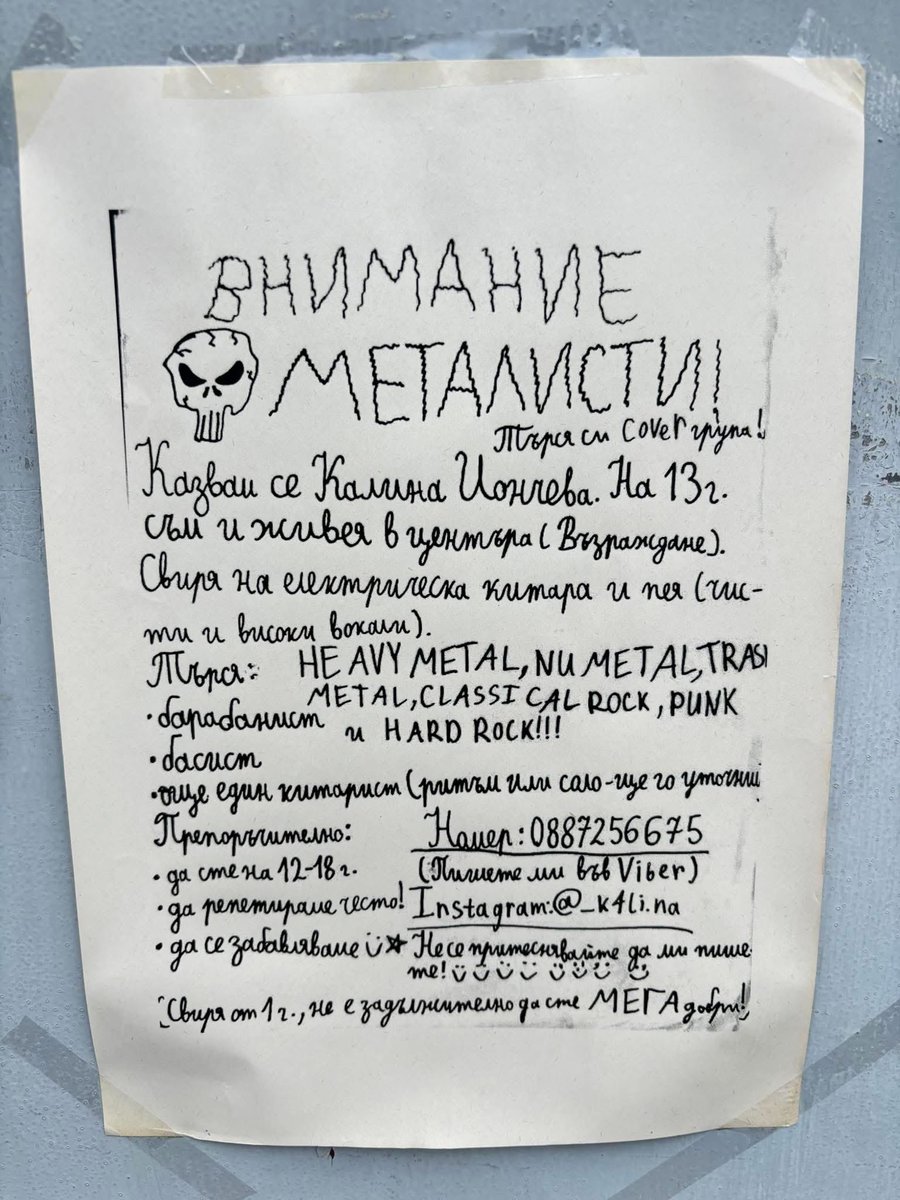 ВНИМАНИЕ
МЕТАЛИСТИ!
Търся си cover група!
Казвам се Калина Йончева. На 13г.
съм и живея в центъра (Възраждане).
Свиря на електрическа китара и пея (чис-
ти и високи вокали).
Търся: HEAVY METAL, NU METAL, TRASH
METAL, CLASSICAL ROCK, PUNK
и HARD ROCK!!!
• барабанист
• басист
• още един китарист (ритъм или соло-ще го уточним
Препоръчително:
• да сте на 12-18г.
• да репетираме често!
• да се забавляваме
Номер: 0887256675
(Пишете ми във Viber)
Instagram:@_k4li.na
Не се притеснявайте да ми пише-
те!
(Свиря от 1г., не е задължително да сте МЕГА добри!)